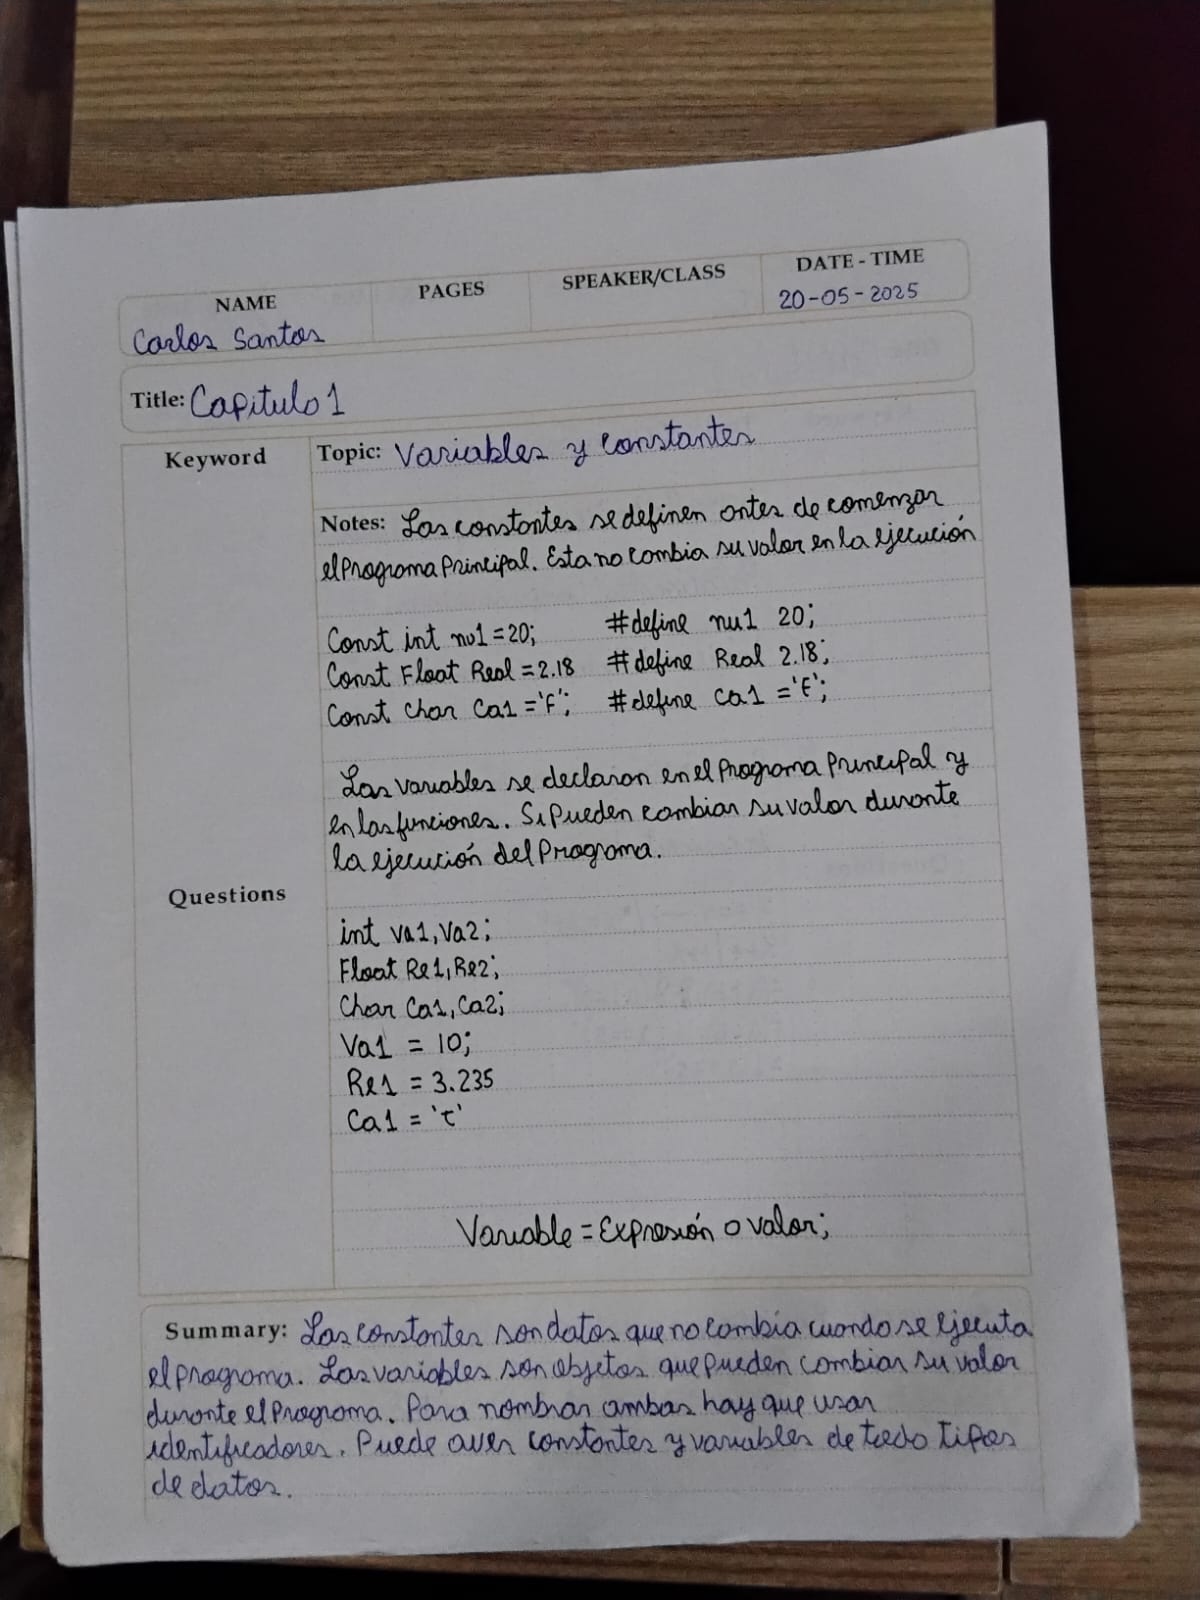 NAME PAGES SPEAKER/CLASS DATE - TIME
Carlos Santos 20-05-2025
Title: Capitulo 1
Keyword Topic: Variables y constantes
Notes: Las constantes se definen antes de comenzar
el programa principal. Esta no cambia su valor en la ejecución
Const int nu1 = 20; #define nu1 20;
Const Float Real = 2.18 #define Real 2.18;
Const Char Ca1 = 'F'; #define ca1 = 'F';
Las variables se declaran en el programa principal y
en las funciones. Si pueden cambiar su valor durante
la ejecución del programa.
Questions
int va1, Va2;
Float Re1, Re2;
Char Ca1, Ca2;
Va1 = 10;
Re1 = 3.235
Ca1 = 't'
Variable = Expresión o valor;
Summary: Las constantes son datos que no cambia cuando se ejecuta
el programa. Las variables son objetos que pueden cambiar su valor
durante el programa. Para nombrar ambas hay que usar
identificadores. Puede aver constantes y variables de todo tipos
de datos.